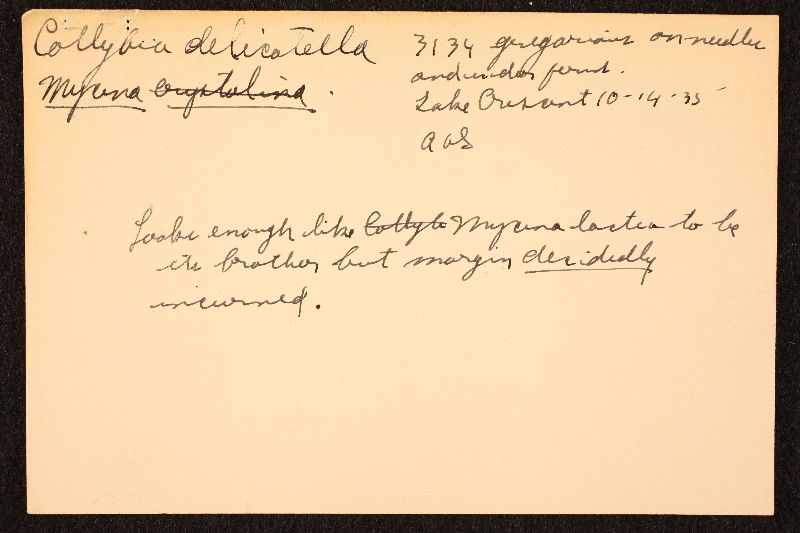 Collybia delicatella
Mycena crystalina.
3134 gregarious on needles
and under ferns.
Lake Crescent 10-14-35
AHS
Looks enough like Collyb Mycena lactea to be
its brother but margin decidedly
incurved.